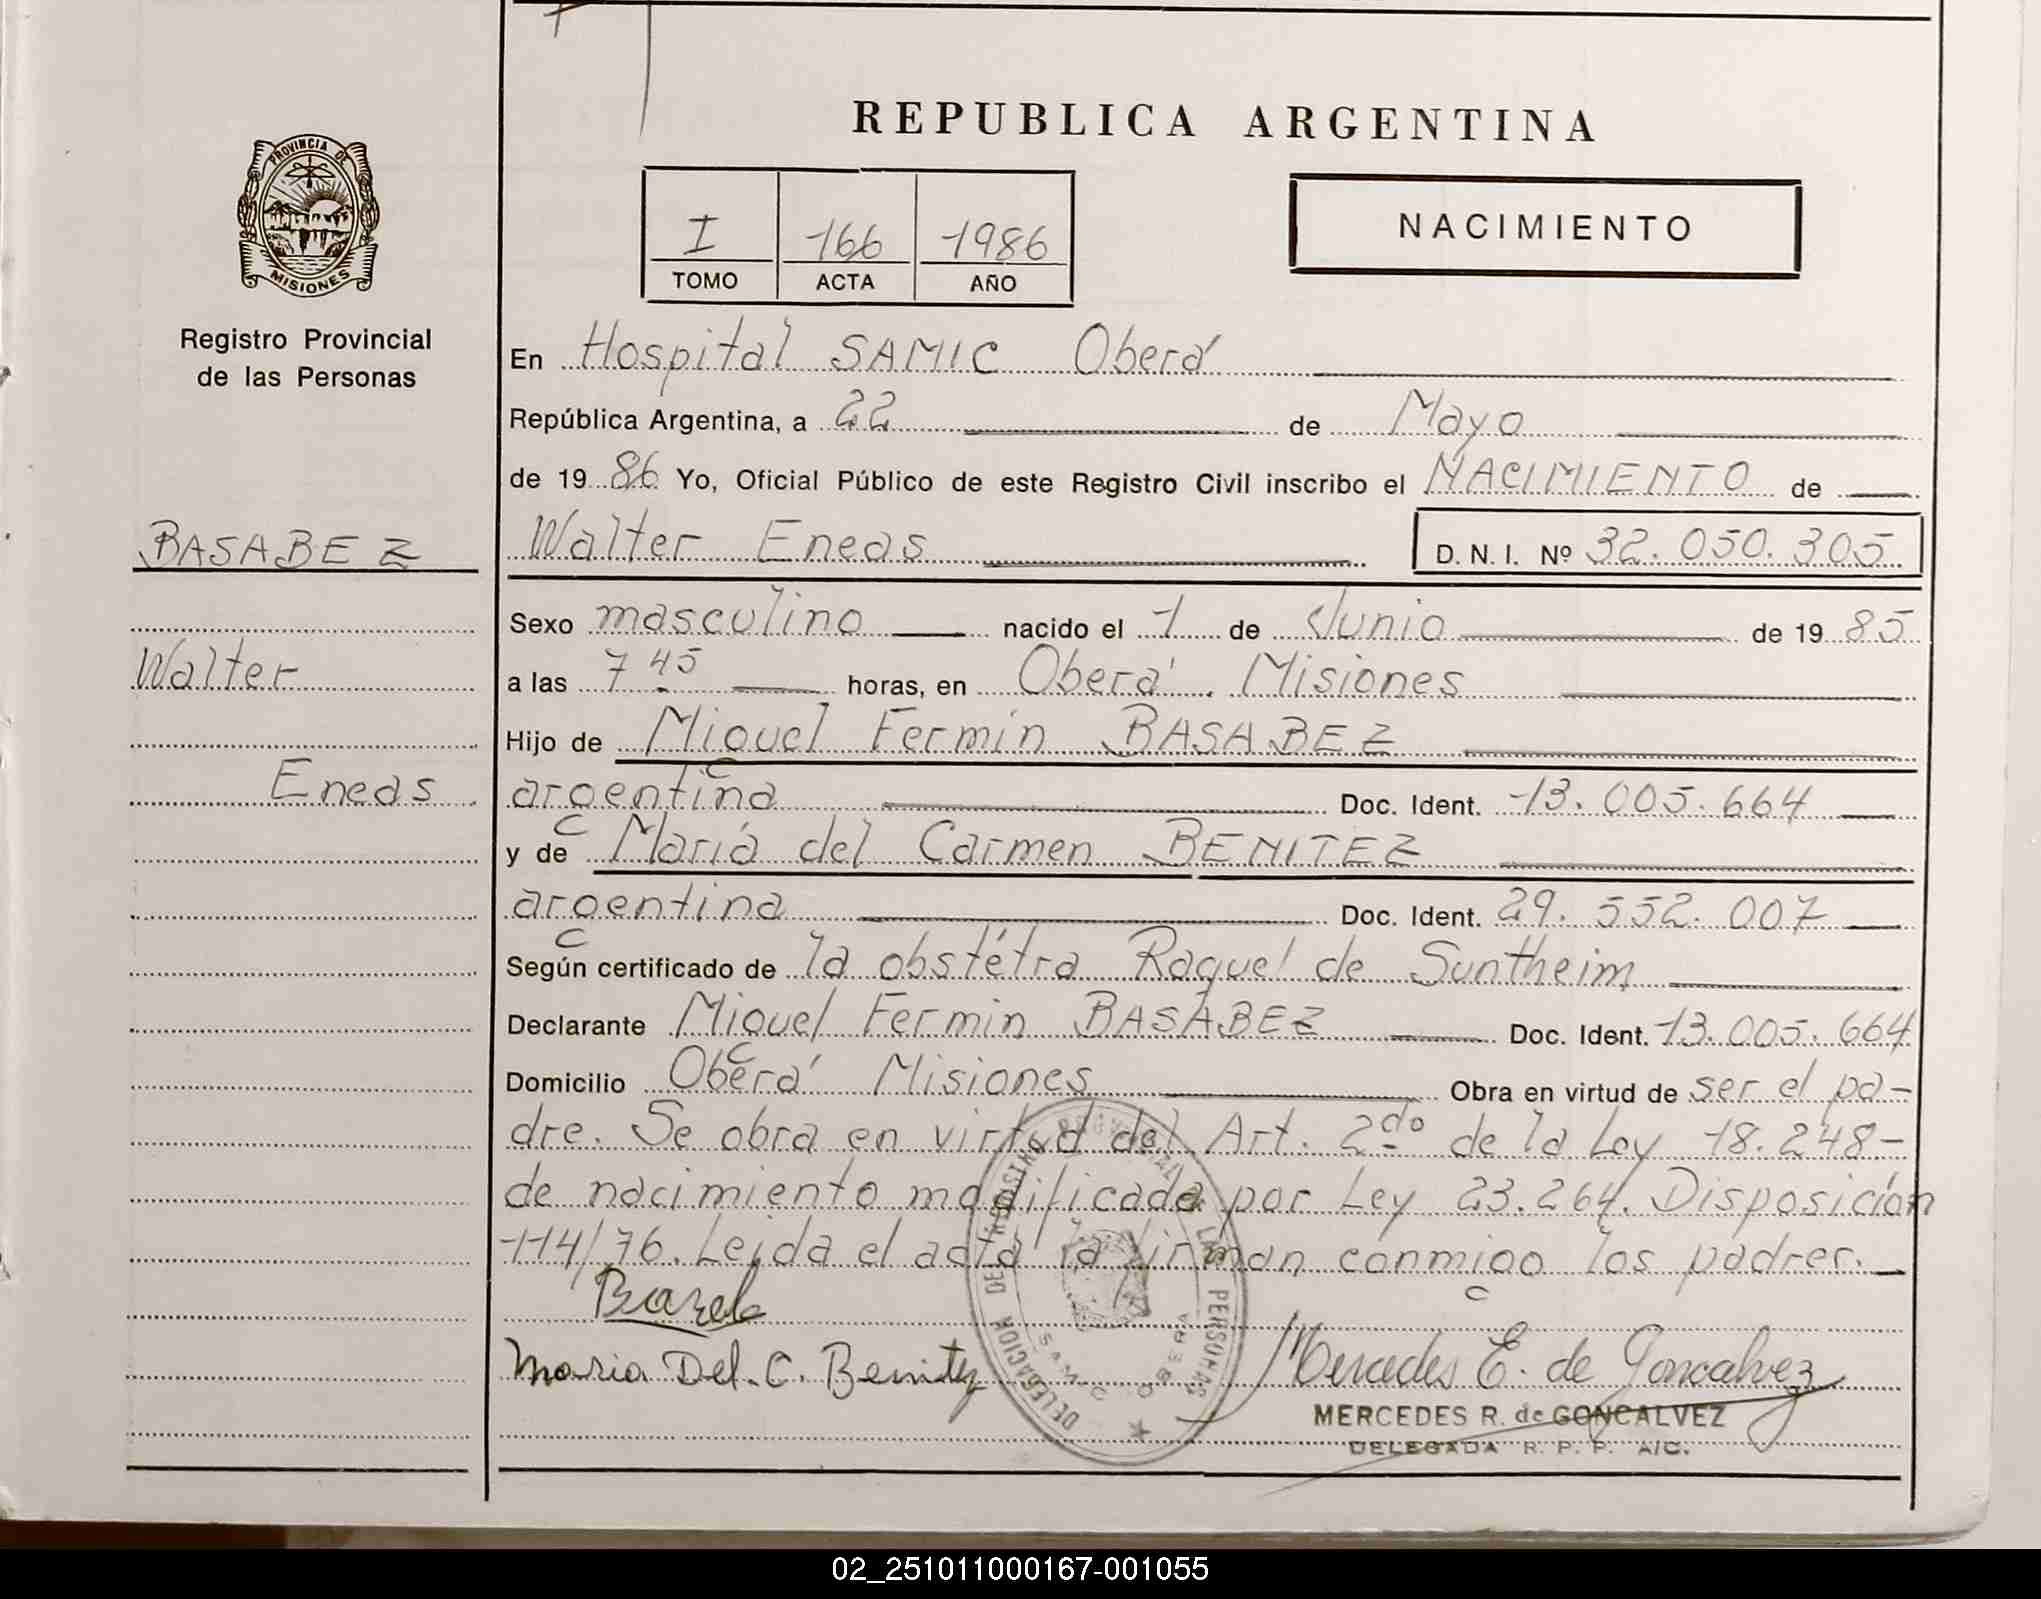 REPUBLICA ARGENTINA
PROVINCIA DE
MISIONES
Registro Provincial
de las Personas
I 166 1986
TOMO ACTA AÑO
NACIMIENTO
En Hospital SAMIC Oberá
República Argentina, a 22 de Mayo
de 1986 Yo, Oficial Público de este Registro Civil inscribo el NACIMIENTO de
BASABEZ
Walter
Eneas
Walter Eneas D. N. I. Nº 32.050.305
Sexo masculino nacido el 1 de Junio de 1985
a las 7.45 horas, en Oberá. Misiones
Hijo de Miguel Fermín BASABEZ
argentina Doc. Ident. 13.005.664
y de María del Carmen BENITEZ
argentina Doc. Ident. 29.552.007
Según certificado de la obstétra Raquel de Suntheim
Declarante Miguel Fermin BASABEZ Doc. Ident. 13.005.664
Domicilio Oberá Misiones Obra en virtud de ser el pa-
dre. Se obra en virtud del Art. 2do de la Ley 18.248-
de nacimiento modificada por Ley 23.264. Disposición
114/76. Leida el acta la firman conmigo los padres.
Maria Del. C. Benitez
Mercedes E. de Goncalvez
MERCEDES R. de GONCALVEZ
DELEGADA R. P. P. A/C.
DELEGACION DE REGISTRO PROVINCIAL DE LAS PERSONAS
OBERA
02_251011000167-001055